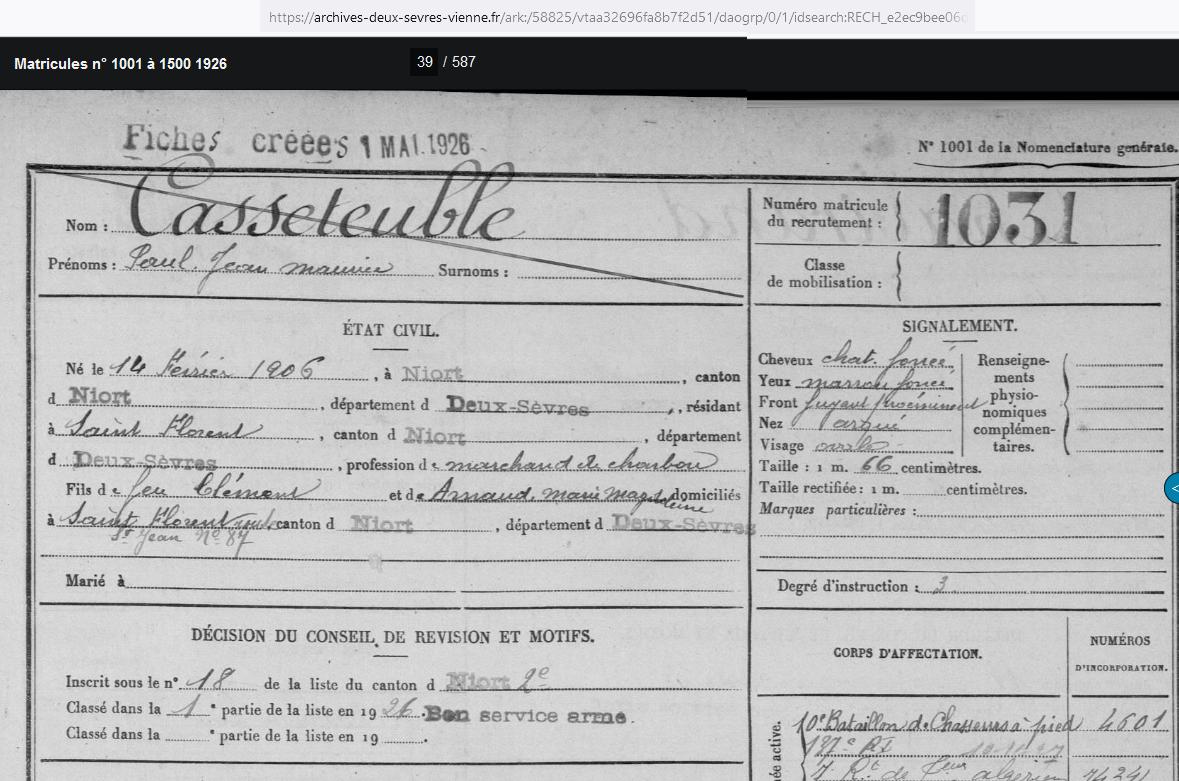 https://archives-deux-sevres-vienne.fr/ark:/58825/vtaa32696fa8b7f2d51/daogrp/0/1/idsearch:RECH_e2ec9bee06
Matricules n° 1001 à 1500 1926
39 / 587
Fiches créées 1 MAI 1926
N° 1001 de la Nomenclature générale.
Nom : Casseteuble
Prénoms : Paul Jean maurice Surnoms :
Numéro matricule du recrutement : 1031
Classe de mobilisation :
ÉTAT CIVIL.
Né le 14 Février 1906, à Niort, canton
d Niort, département d Deux-Sèvres, résidant
à Saint Florent, canton d Niort, département
d Deux-Sèvres, profession de marchand de charbon
Fils de feu Clément et de Arnaud, marie Magdeleine domiciliés
à Saint Florent canton d Niort, département d Deux-Sèvres
St Jean N° 87
Marié à
SIGNALEMENT.
Cheveux chat. foncé
Yeux marron foncé
Front fuyant proéminent
Nez arqué
Visage ovale
Renseigne-
ments
physio-
nomiques
complémen-
taires.
Taille : 1 m. 66 centimètres.
Taille rectifiée : 1 m. centimètres.
Marques particulières :
Degré d'instruction : 3
DÉCISION DU CONSEIL DE REVISION ET MOTIFS.
Inscrit sous le n° 18 de la liste du canton d Niort 2e
Classé dans la 1 e partie de la liste en 1926. Bon service armé.
Classé dans la e partie de la liste en 19 .
CORPS D'AFFECTATION.
NUMÉROS
D'INCORPORATION.
10e Bataillon de Chasseurs à pied 4601